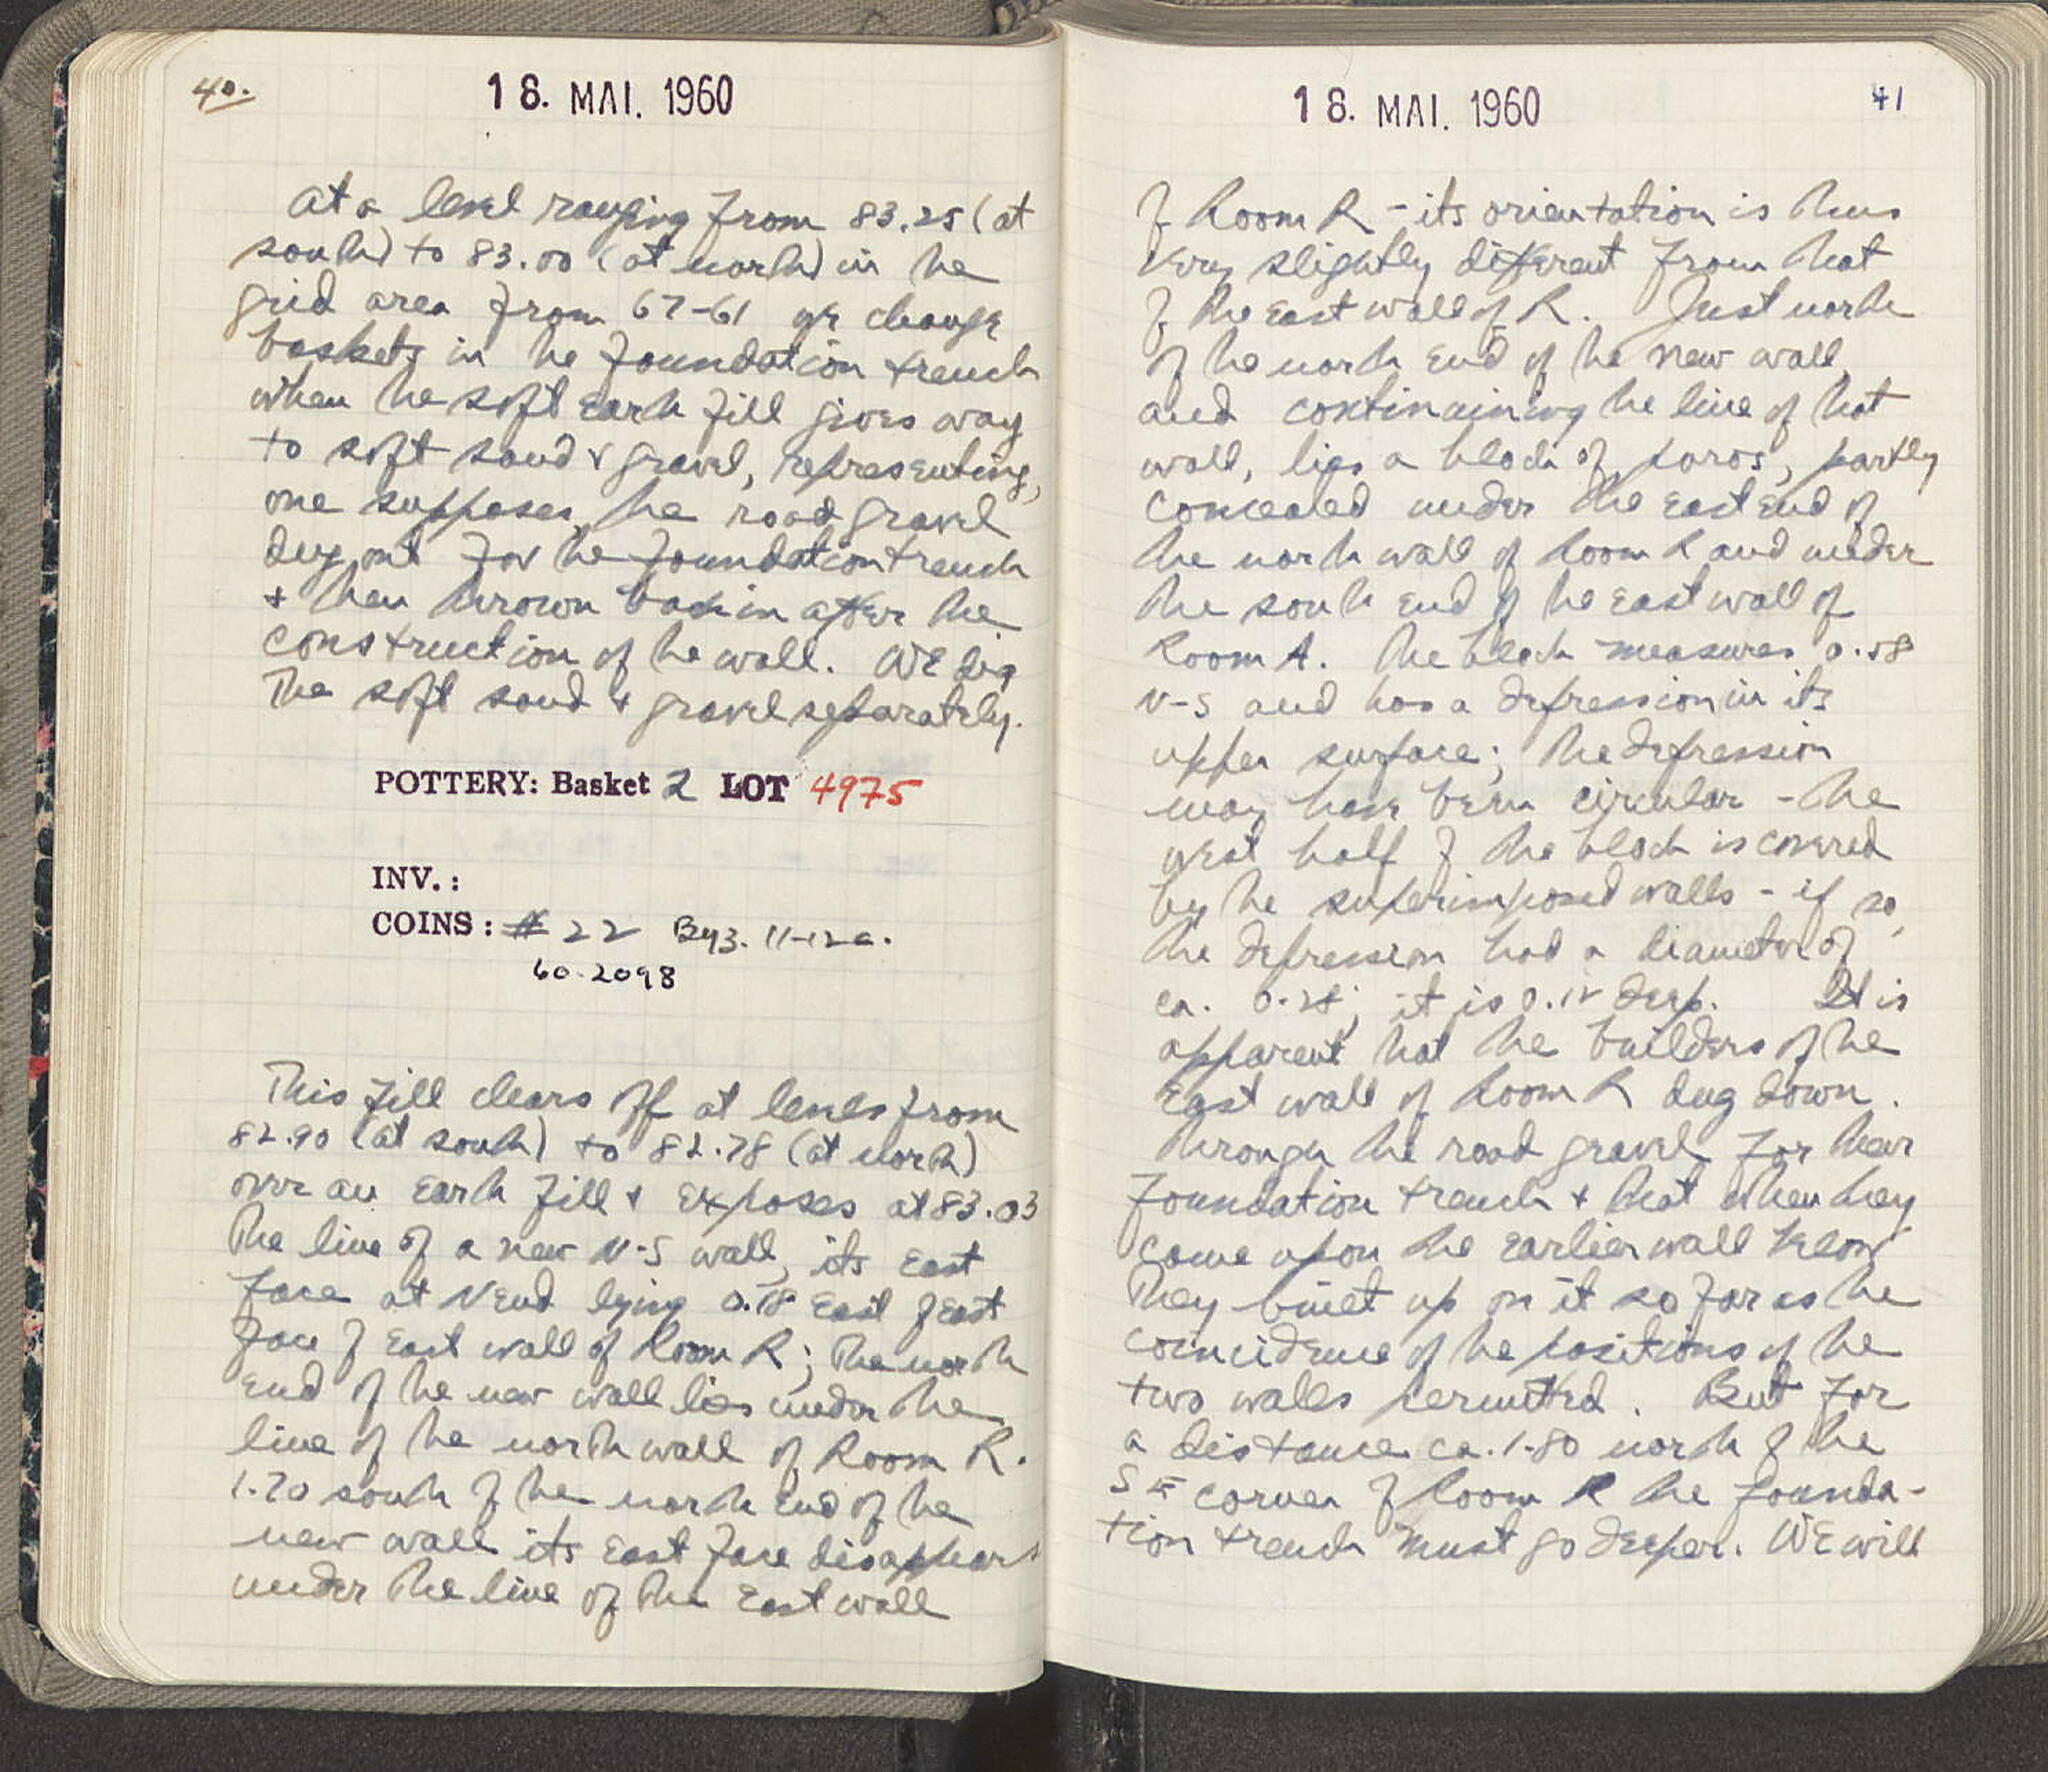 40.
18. MAI. 1960
At a level ranging from 83.25 (at
south) to 83.00 (at north) in the
grid area from 67-61 we change
baskets in the foundation trench
when the soft earth fill gives way
to soft sand & gravel, representing,
one supposes, the road gravel
dug out for the foundation trench
+ then thrown back in after the
construction of the wall. We dig
the soft sand & gravel separately.
POTTERY: Basket 2 LOT 4975
INV.:
COINS: # 22 Byz. 11-12c.
60.2098
This fill clears off at levels from
82.90 (at south) to 82.78 (at north)
over an earth fill & exposes at 83.03
the line of a new N-S wall, its east
face at N end lying 0.18 east of east
face of east wall of Room R; the north
end of the new wall lies under the
line of the north wall of Room R.
1.70 south of the north end of the
new wall its east face disappears
under the line of the east wall
18. MAI. 1960
41
of Room R - its orientation is thus
very slightly different from that
of the east wall of R. Just north
of the north end of the new wall,
and continuining the line of that
wall, lies a block of poros, partly
concealed under the east end of
the north wall of Room R and under
the south end of the east wall of
Room A. The block measures 0.58
N-S and has a depression in its
upper surface; the depression
may have been circular - the
west half of the block is covered
by the superimposed walls - if so,
the depression had a diameter of
ca. 0.28; it is 0.12 deep. It is
apparent that the builders of the
east wall of Room R dug down
through the road gravel for their
foundation trench + that when they
came upon the earlier wall below
they built up on it so far as the
coincidence of the positions of the
two walls permitted. But for
a distance ca. 1.80 north of the
SE corner of Room R the founda-
tion trench must go deeper. We will